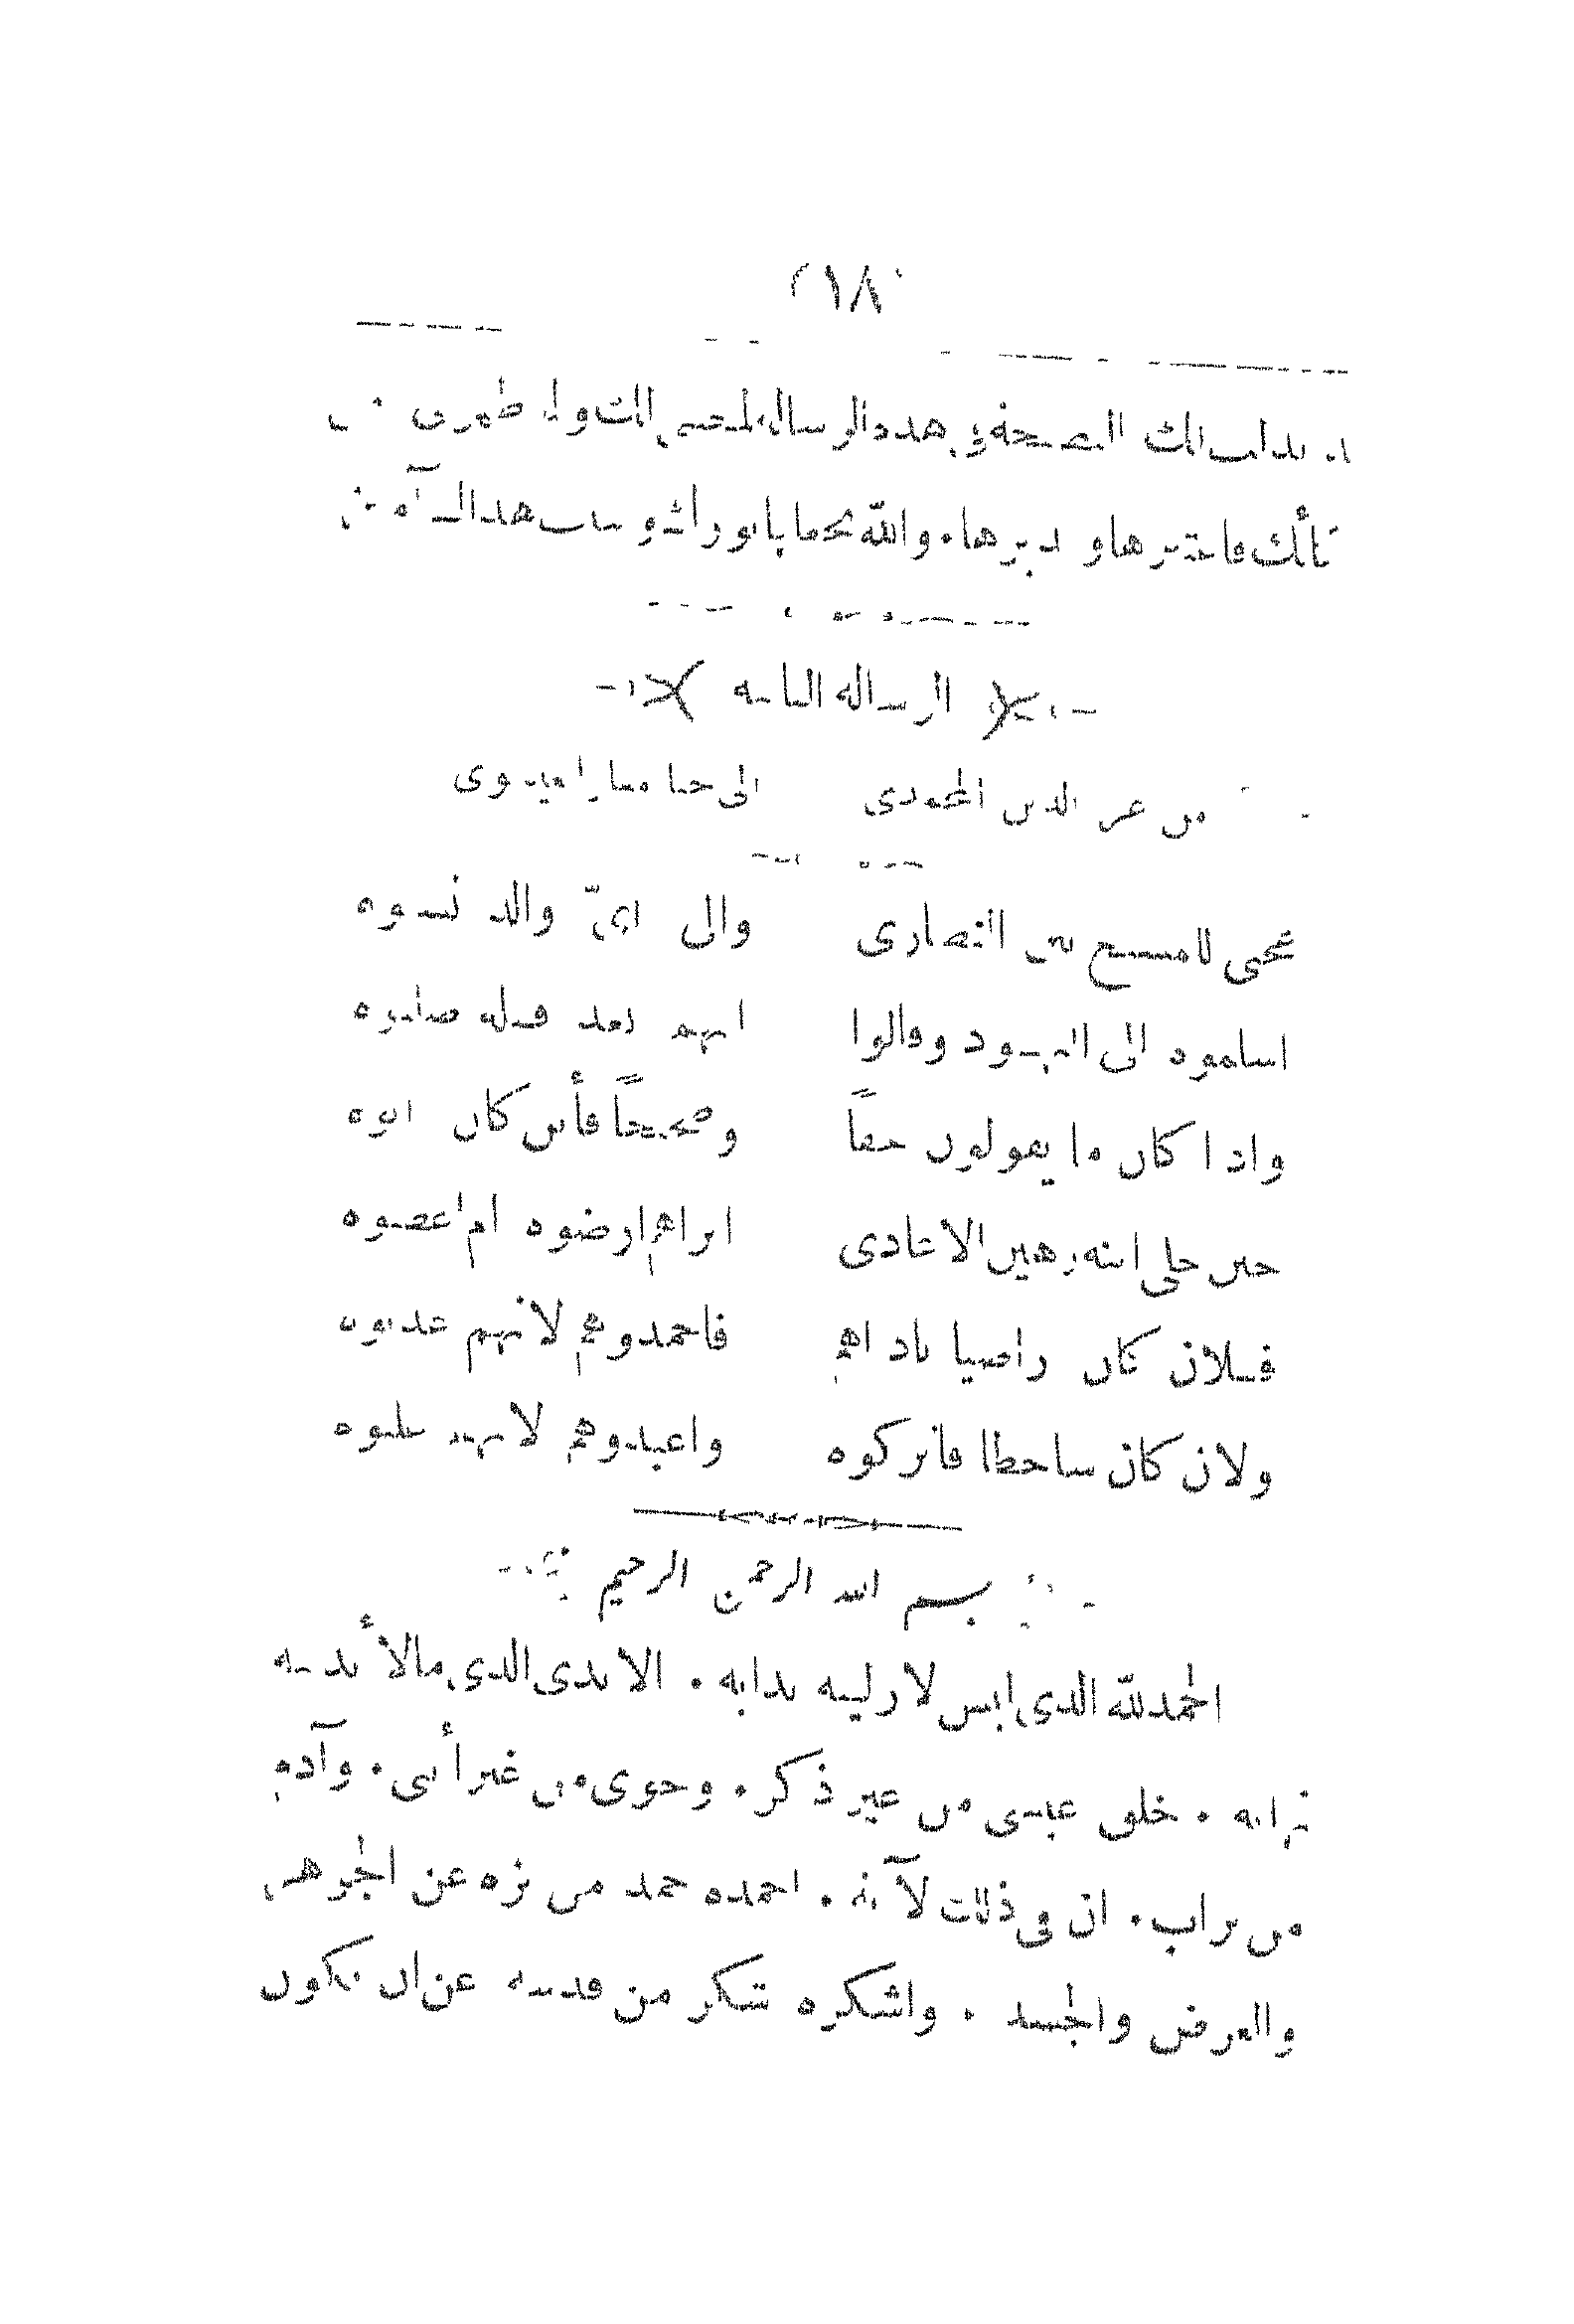 (١٨)
بذلت لك النصيحة في هذه الرسالة لمحبتي لك
تأتك فاختبرها و دبرها. والله يحمانا بانوراثه و هذا آمين
الرسالة الثامنة
من عز الدين المحمدي الى حنا مارا مينوى
عجبى للمسيح بين النصارى والى اىّ والد نسبوه
اسلموه الى اليهود وقالوا انهم بعد قتله صلبوه
واذا كان ما يقولون حقاً وصحيحاً فأين كان ابوه
حين خلى ابنه رهين الاعادى اتراهم ارضوه ام اغضبوه
فلان كان راضيا باذاهم فاحمدوهم لانهم عذبوه
ولان كان ساخطا فاتركوه واعبدوهم لانهم غلبوه
بسم الله الرحمن الرحيم
الحمد لله الذى ليس لازليته بداية. الابدى الذى مالأبديته
نهاية. خلق عيسى من غير ذكر. وحوى من غير أنثى. وآدم
من تراب. ان في ذلك لآية. احمده حمد من نزه عن الجوهر
والعرض والجسد. واشكره شكر من قدسه عن ان تكون